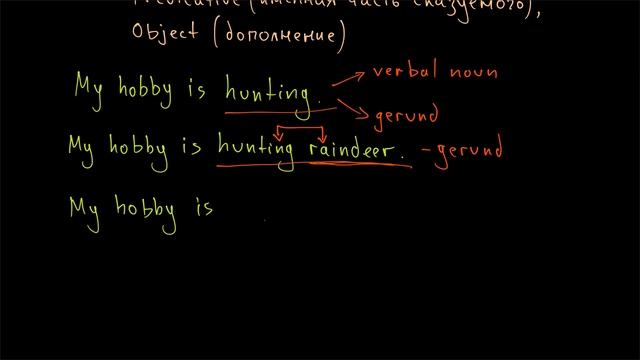 Predicative (именная часть сказуемого),
Object (дополнение)
My hobby is hunting. verbal noun
gerund
My hobby is hunting raindeer. - gerund
My hobby is